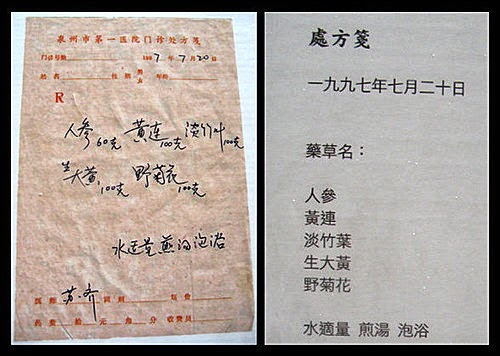 泉州市第一医院门诊处方笺
门诊号数 1997年7月20日
姓名 性别 男 女 年龄
R
人参60克 黄连100克 淡竹叶100克
生大黄100克 野菊花100克
水适量煎汤泡浴
医师 苏齐 调剂 划价
药费 拾 元 角 分 收费员
處方箋
一九九七年七月二十日
藥草名：
人參
黃連
淡竹葉
生大黃
野菊花
水適量 煎湯 泡浴